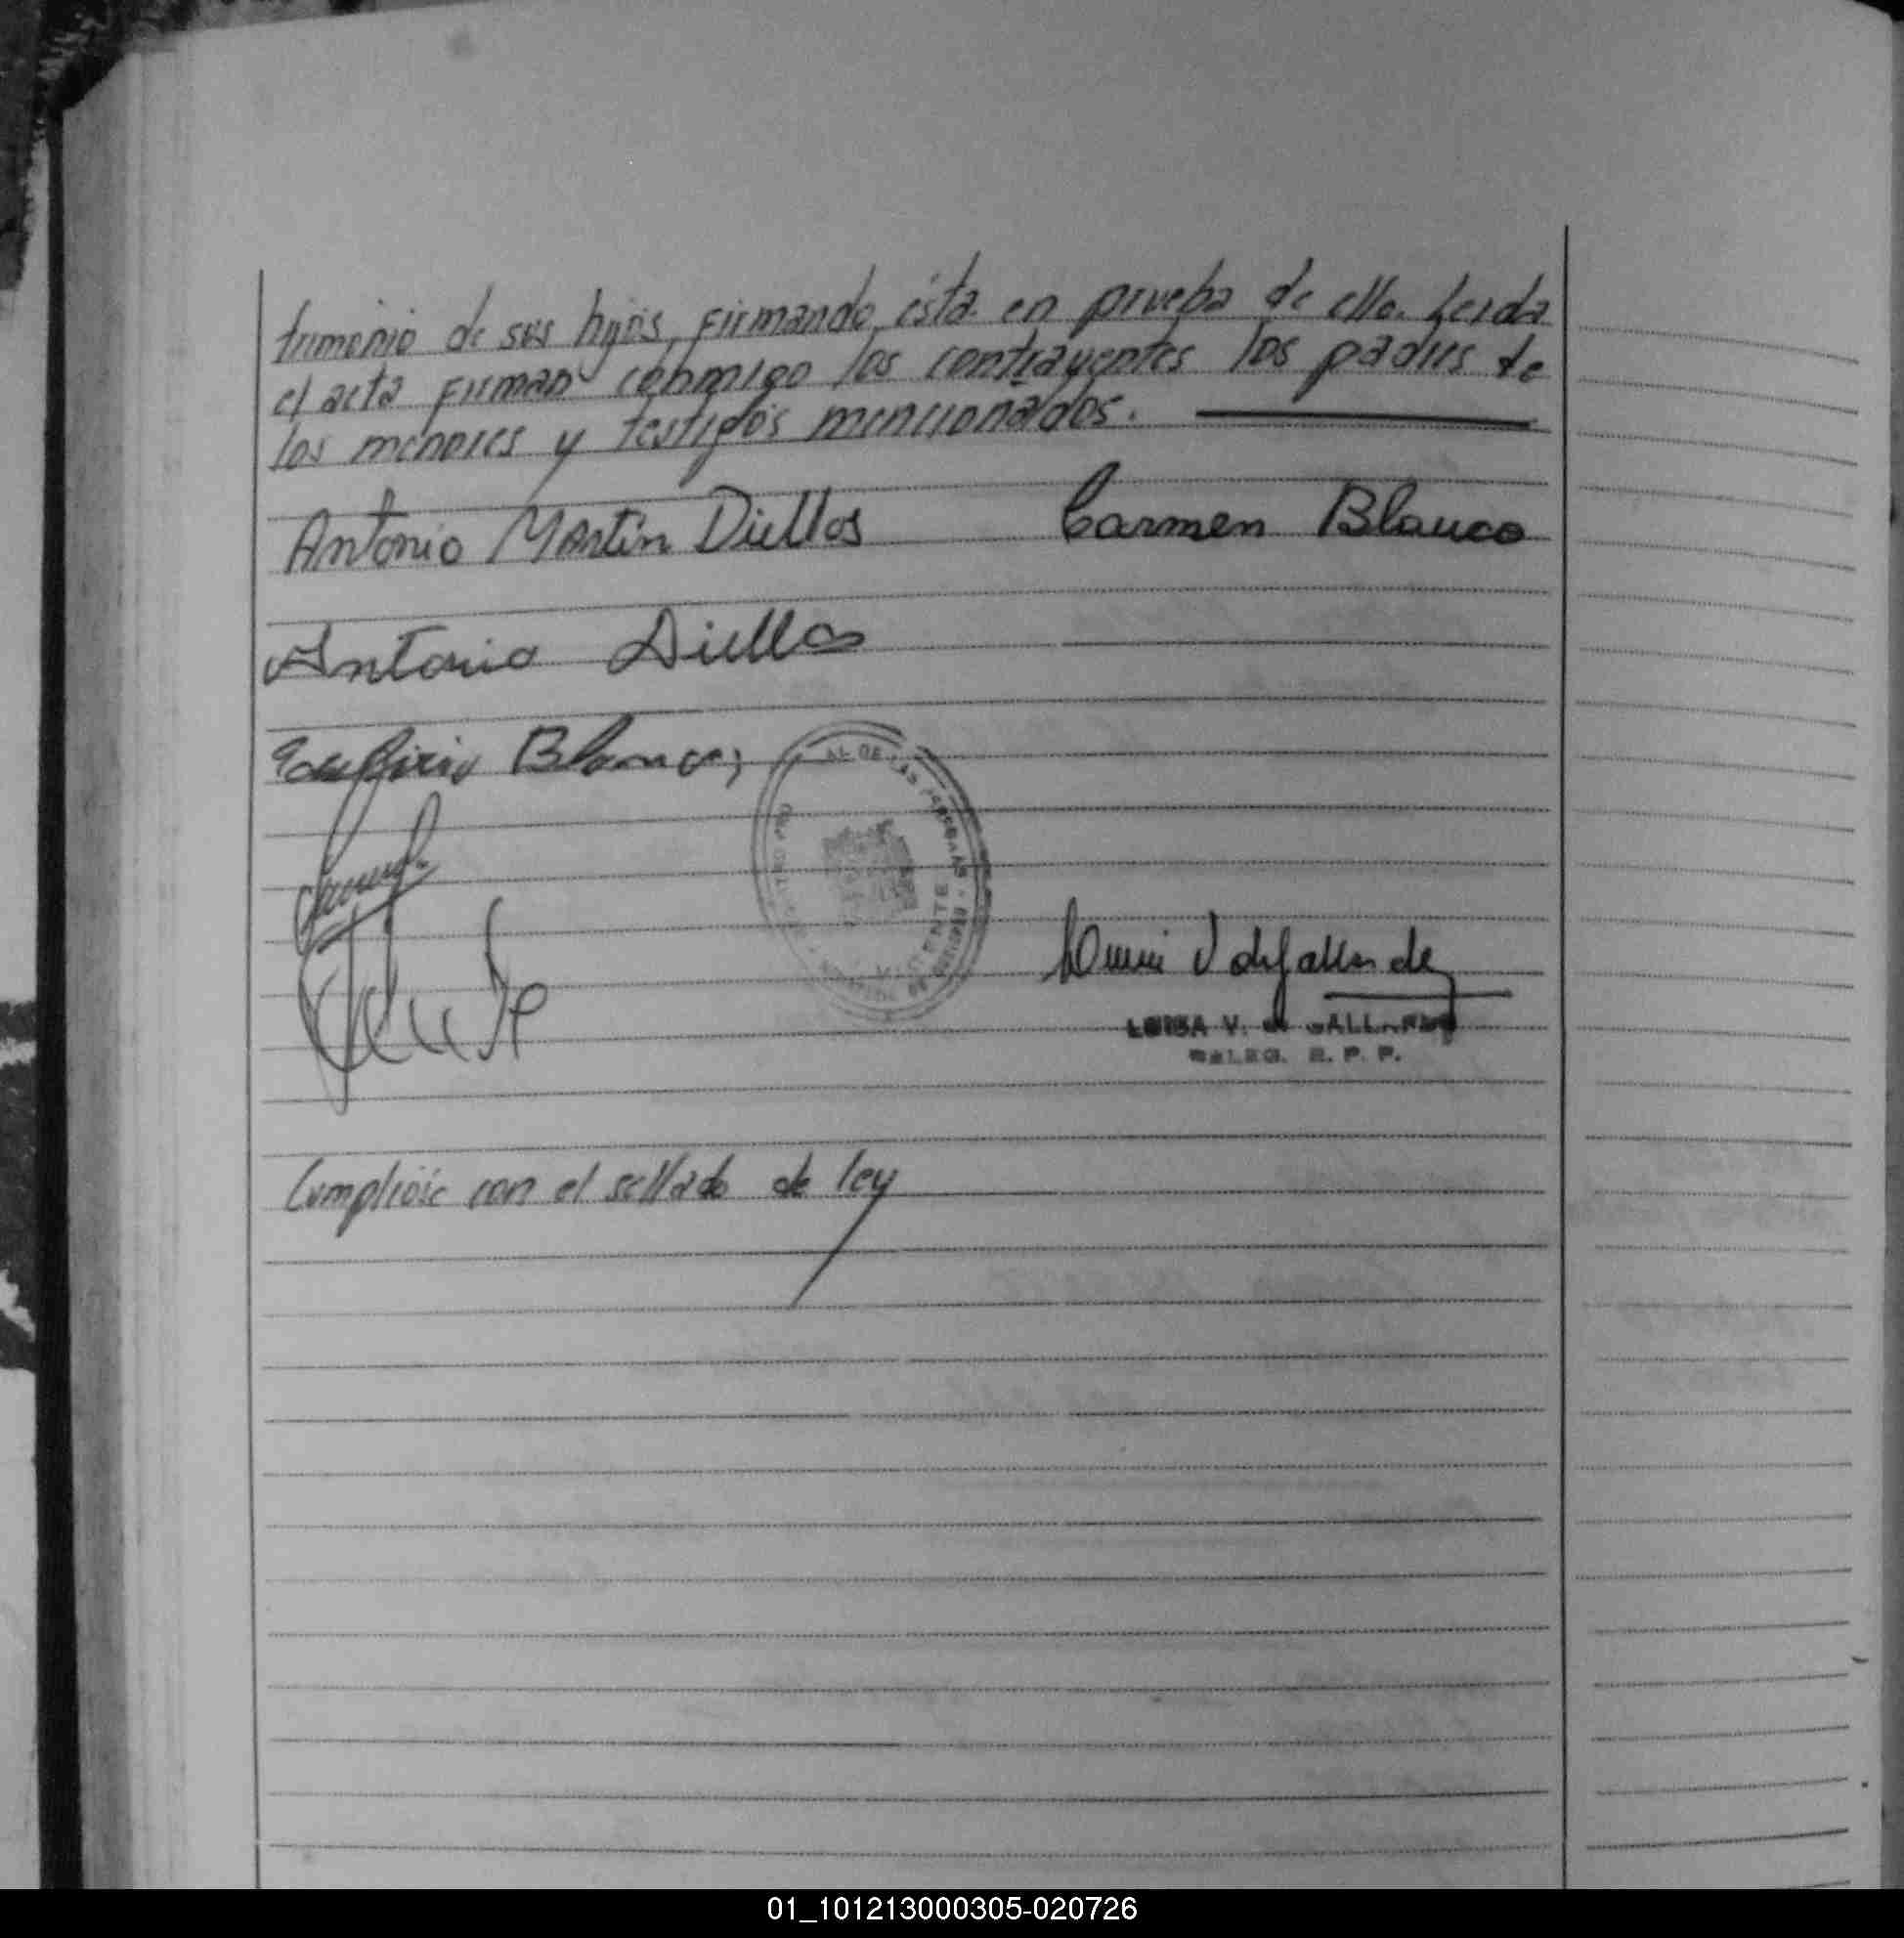 trimonio de sus hijos, firmando ésta en prueba de ello. Leida
el acta firman conmigo los contrayentes los padres de
los menores y testigos mencionados.
Antonio Martin Diellos Carmen Blanco
Antonio Diellos
Blanco
LUISA V. de GALLARDO
DELEG. R. P. P.
Cumplióse con el sellado de ley
01_101213000305-020726